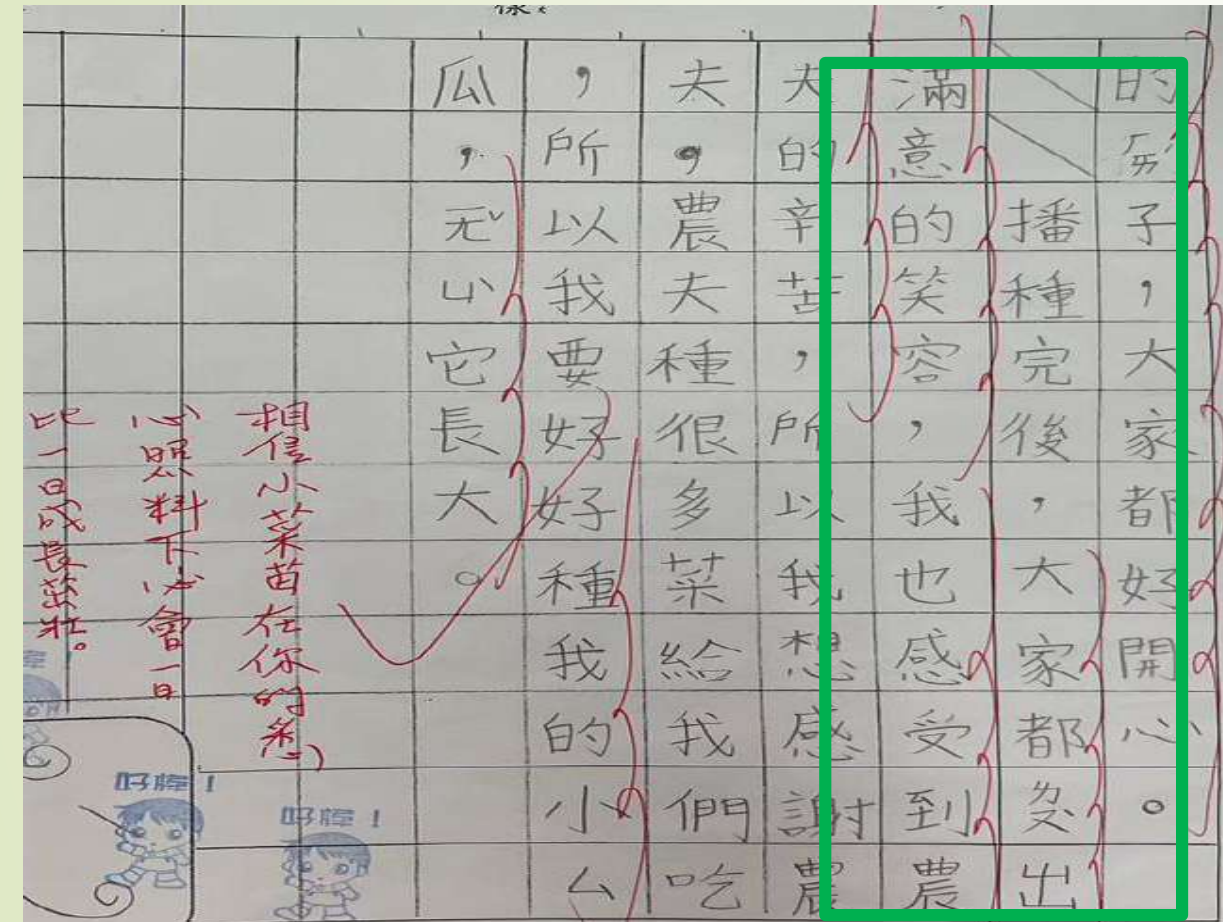 的ㄏㄞˊ子，大家都好開心。
播種完後，大家都ㄌㄡˋ出
滿意的笑容，我也感受到農
夫的辛苦，所以我想感謝農
夫，農夫種很多菜給我們吃
，所以我要好好種我的小ㄙ
瓜，它長大。
相信小菜苗在你的悉
心照料下必會一日
比一日成長茁壯。
好棒！
好棒！